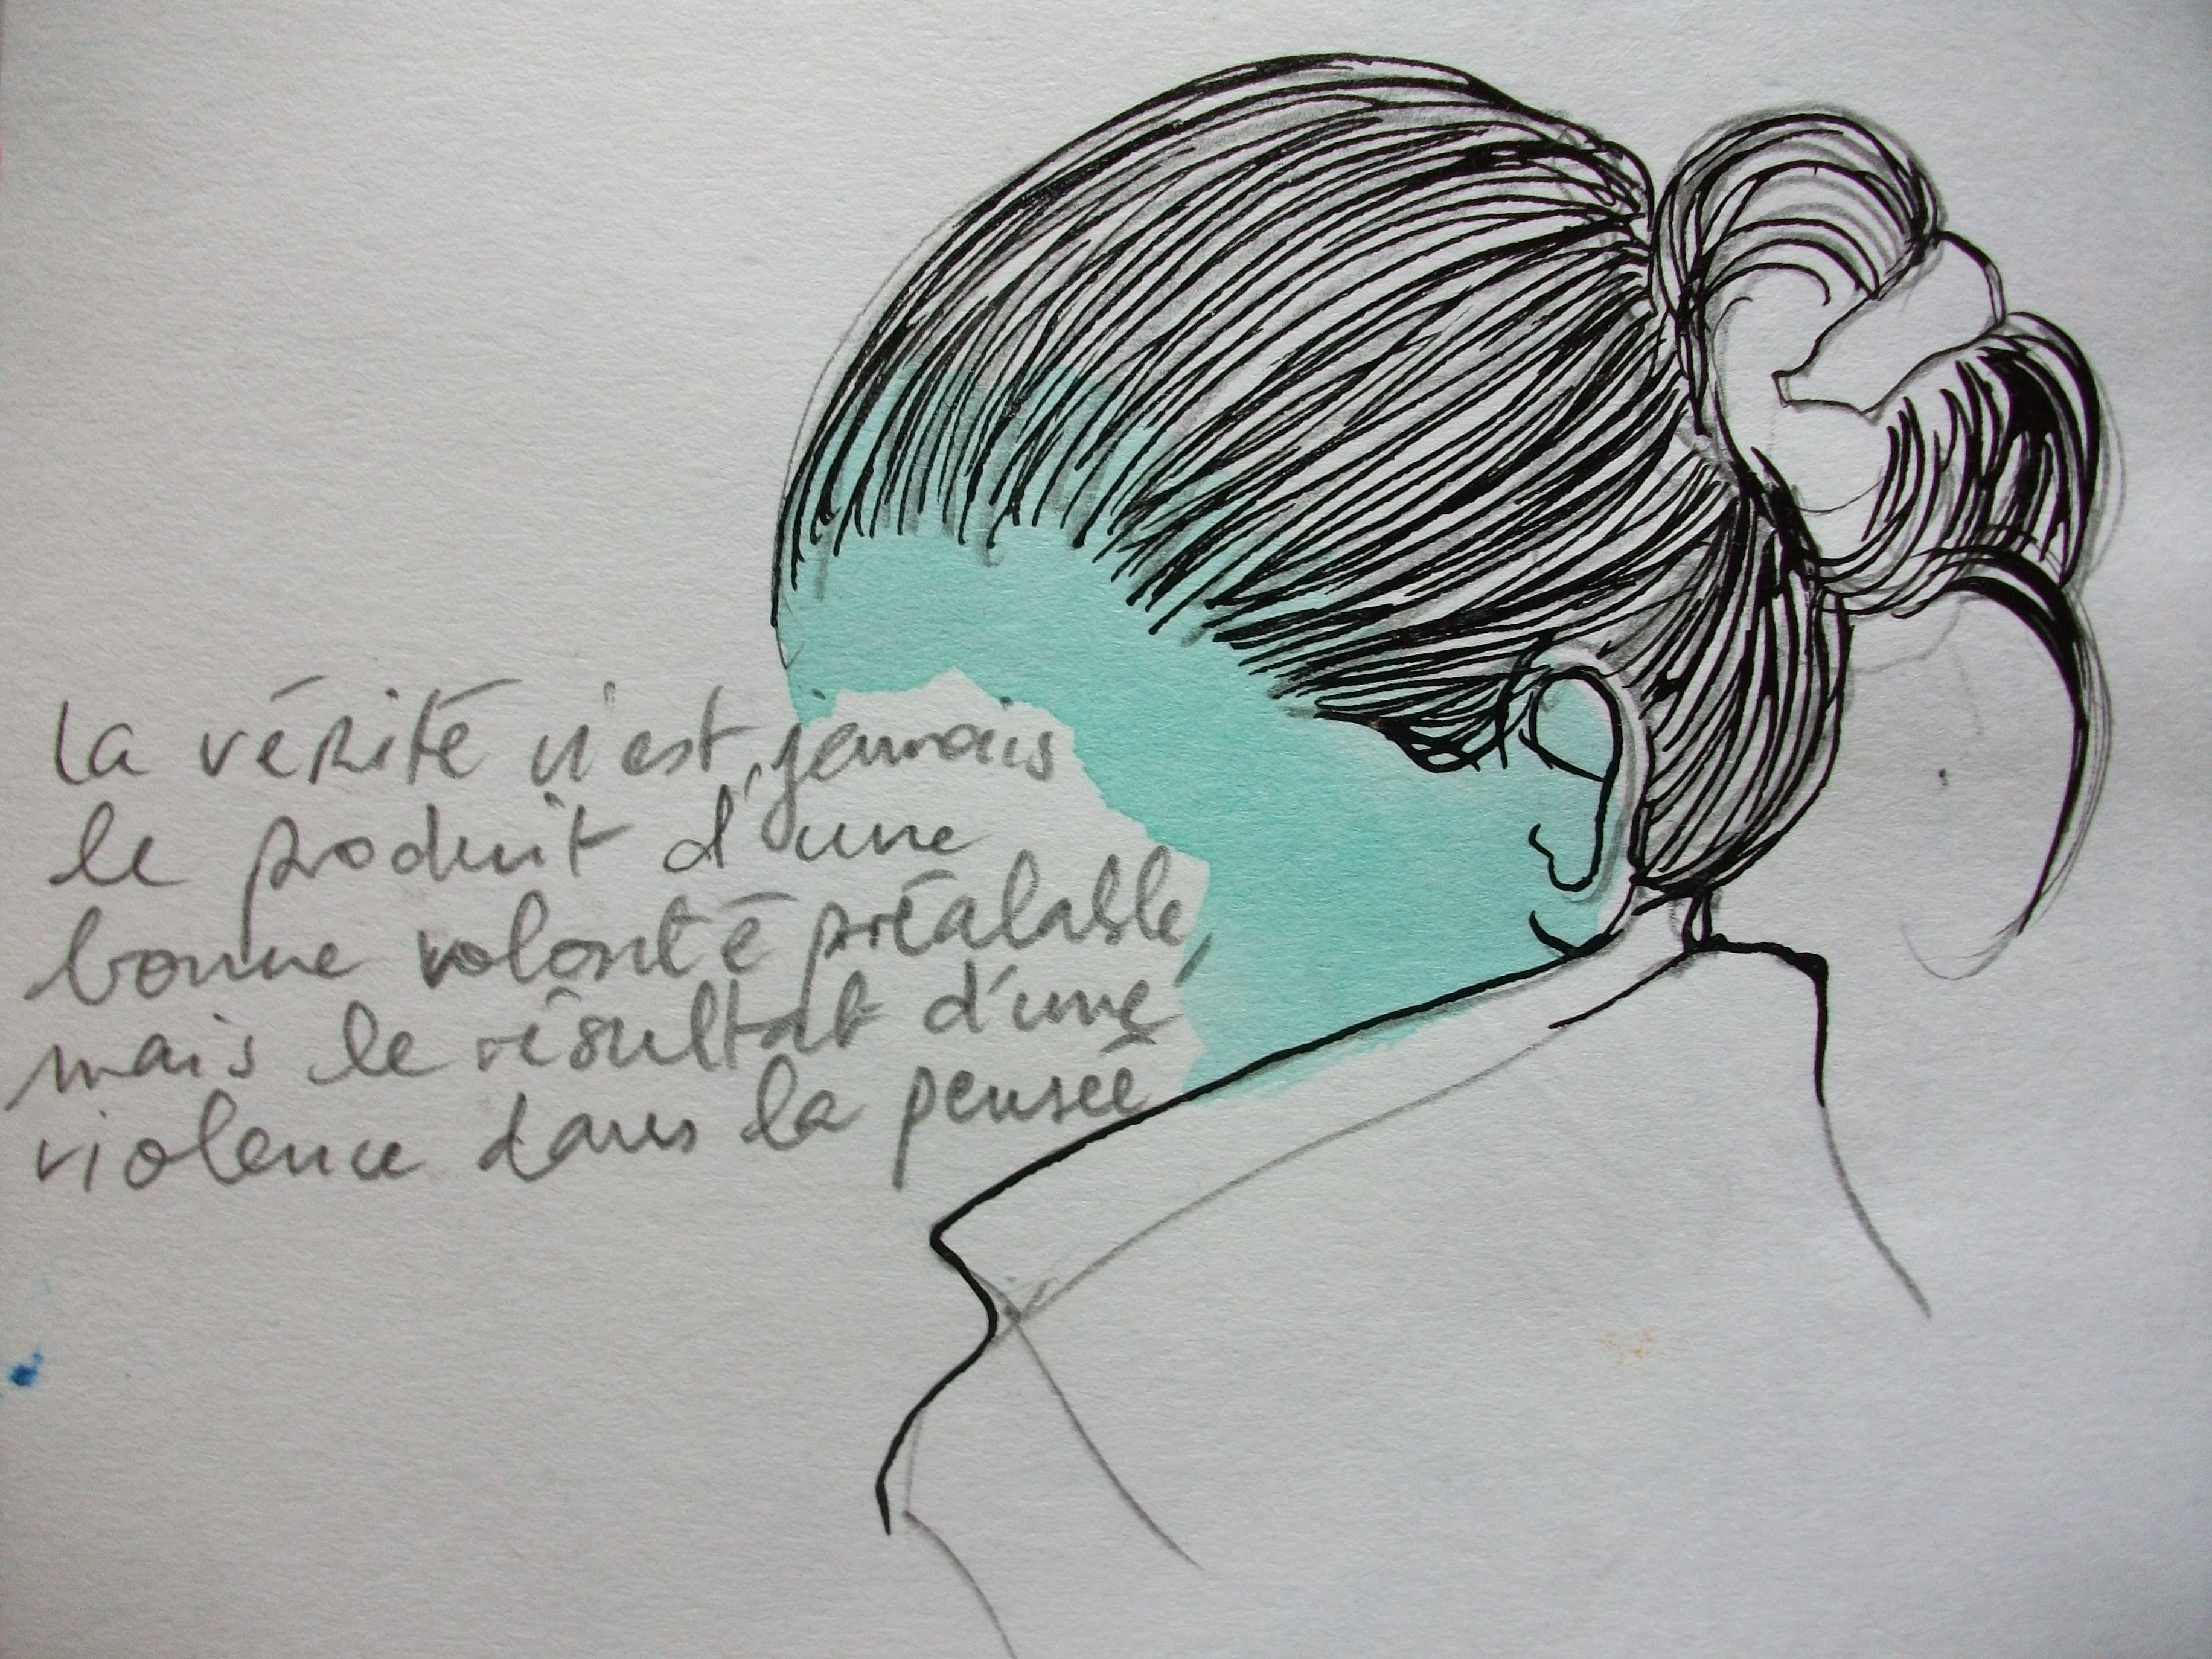 la vérité n'est jamais
le produit d'une
bonne volonté préalable,
mais le résultat d'une
violence dans la pensée